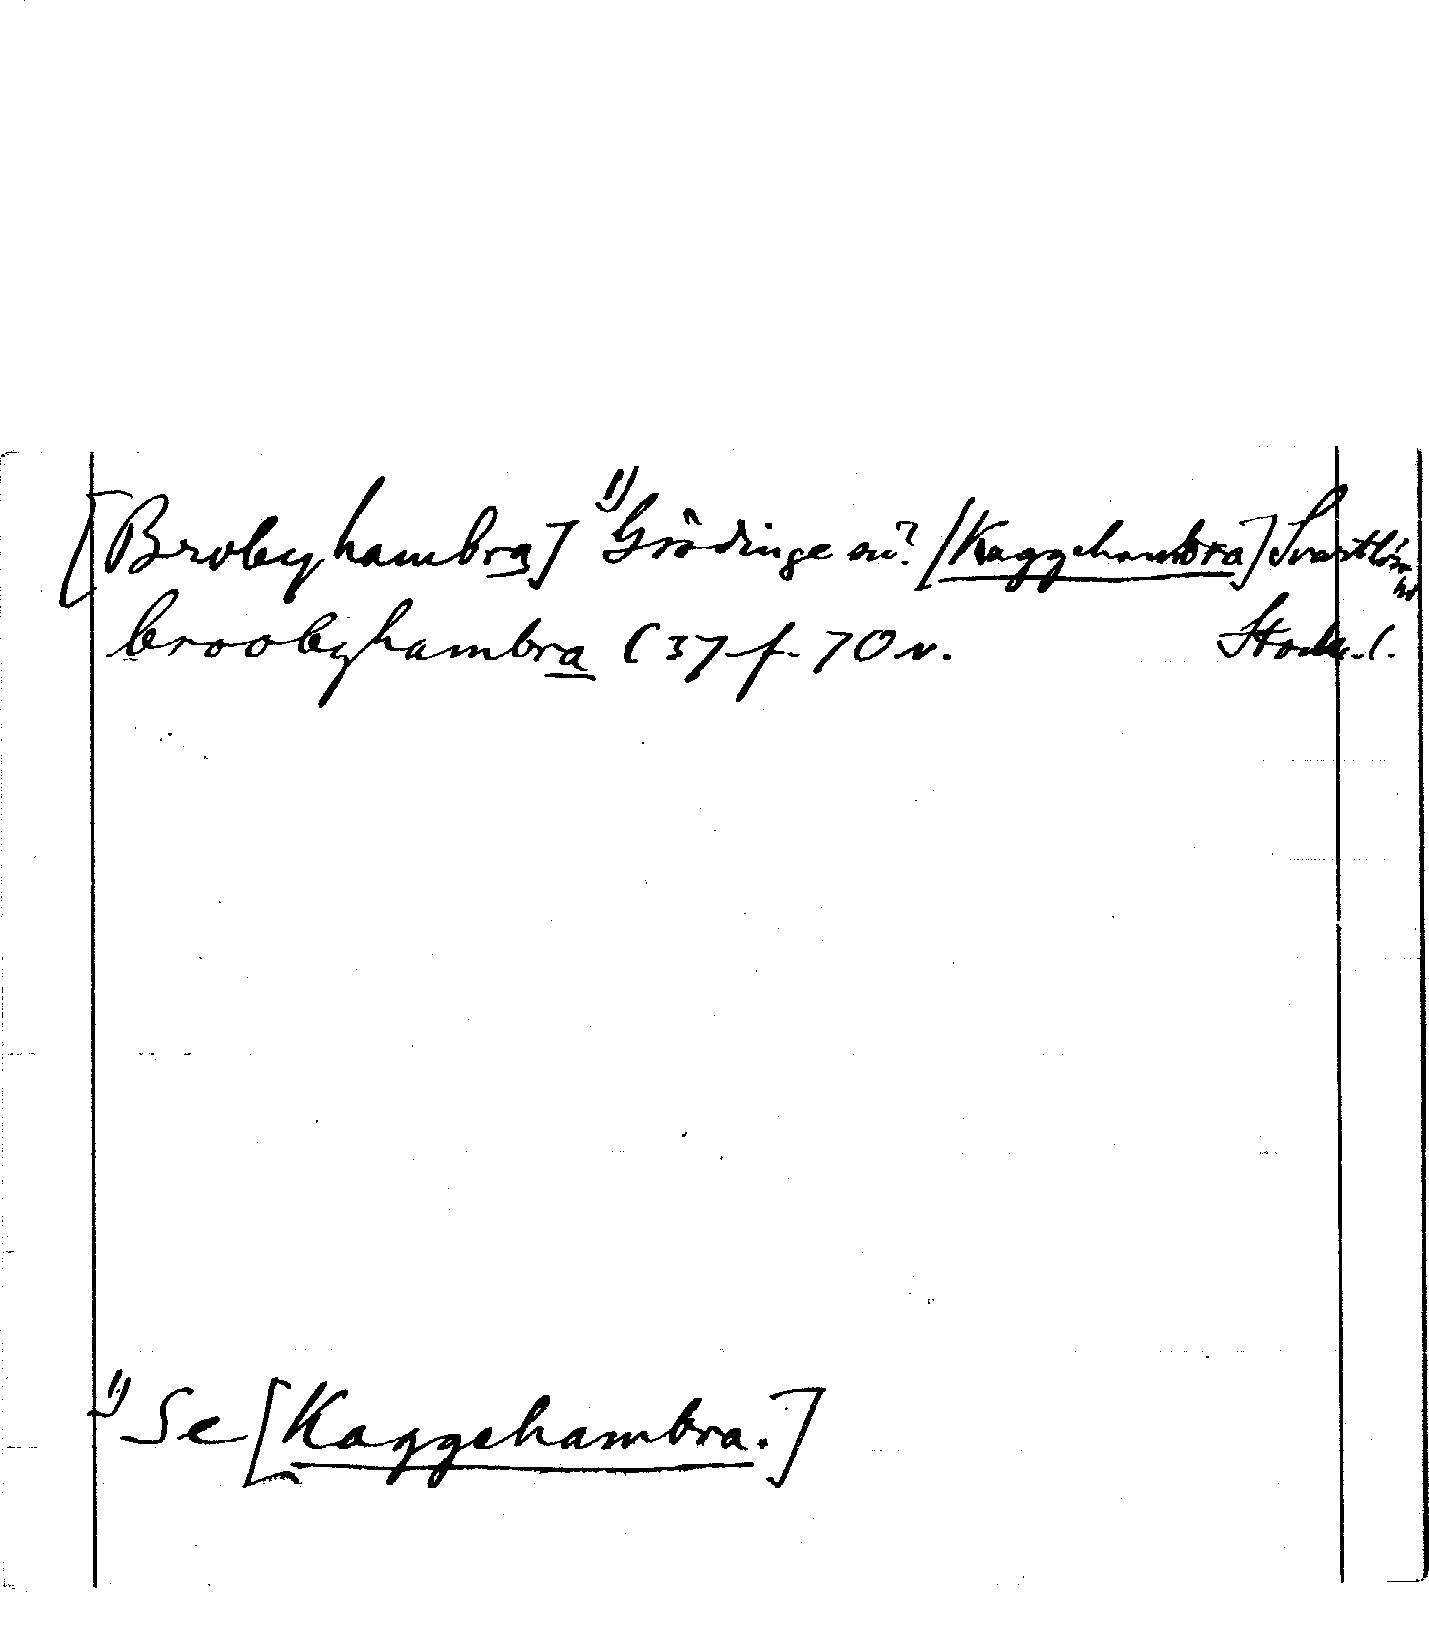 [Brobyhambra] 1) Grödinge sn? [Kaggehambra] Svartlösa hd
broobyhambra C 37 f. 70 v. Stock. l.
1) Se [Kaggehambra.]